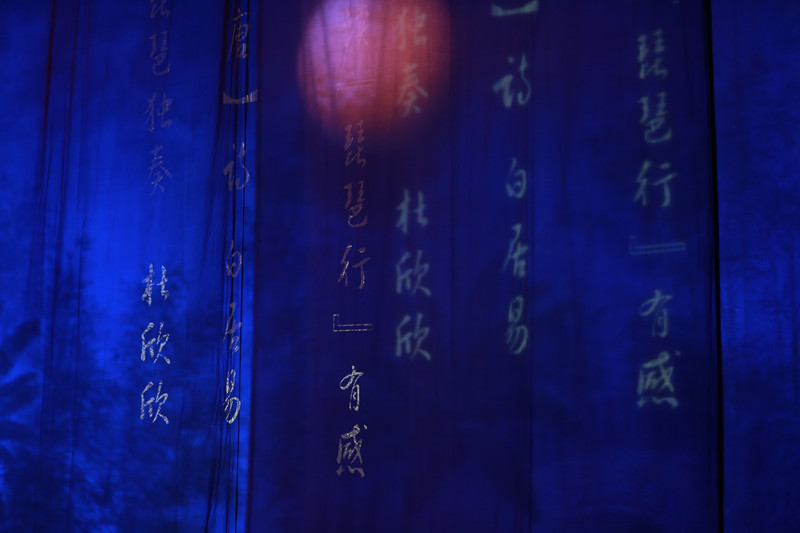 琵琶行』有感
】诗 白居易
独奏 杜欣欣
琵琶行』有感
唐】诗 白居易
琵琶独奏 杜欣欣